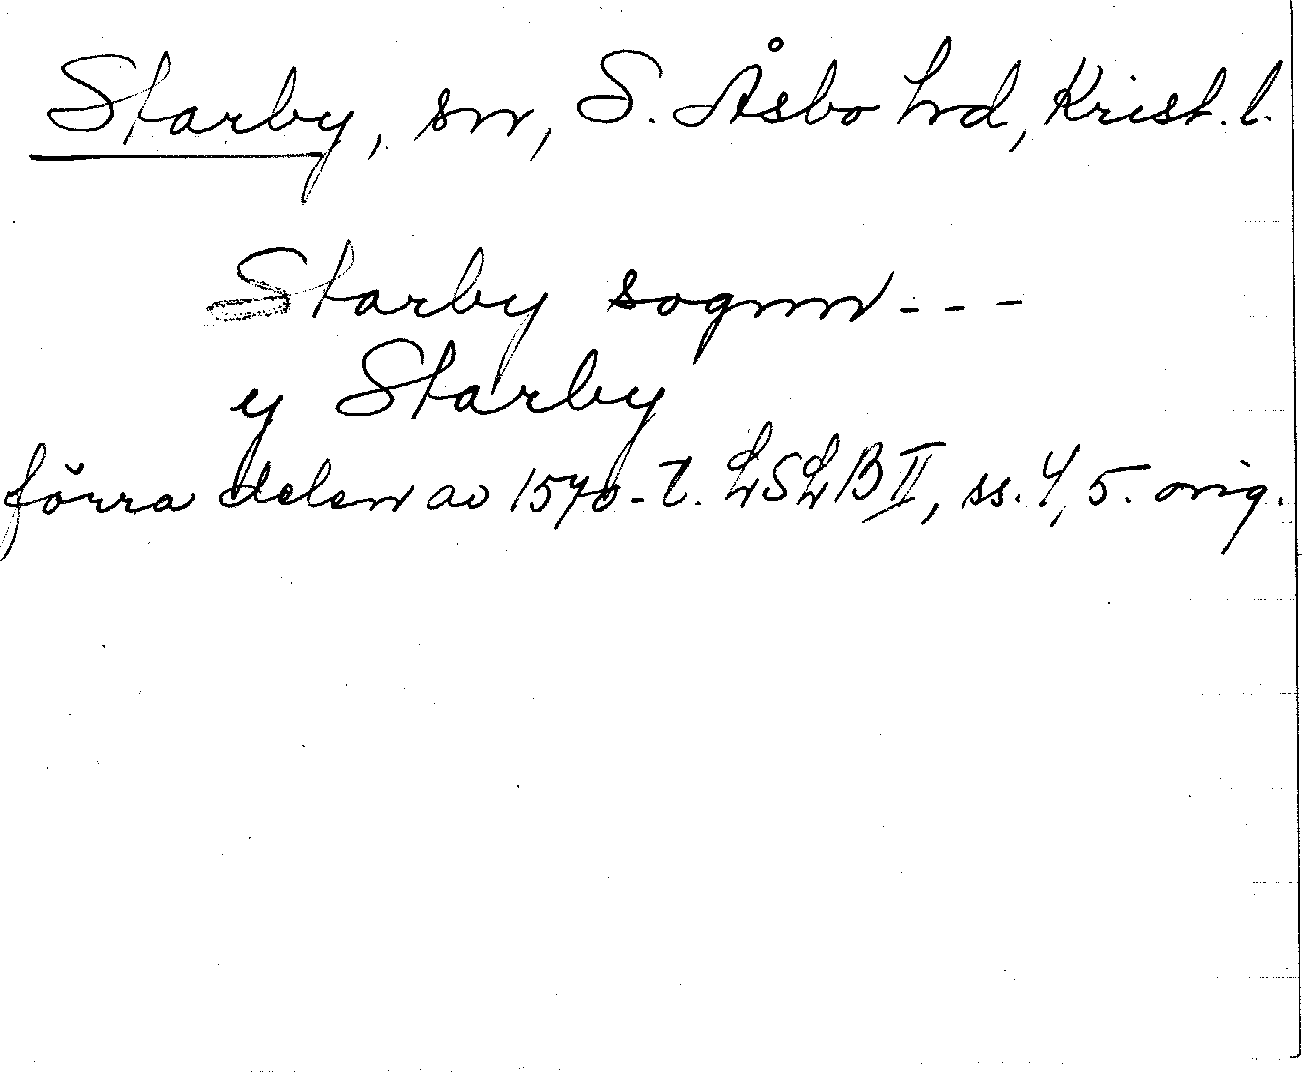 Starby, sn, S. Åsbo hd, Krist. l.
Starby sognn - - -
y Starby
förra delen av 1570-t. LSLB II, ss. 4, 5. orig.